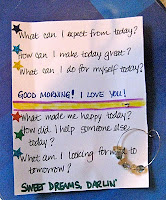 What can I expect from today?
How can I make today great?
What can I do for myself today?
GOOD MORNING! I LOVE YOU!
What made me happy today?
How did I help someone else
today?
What am I looking forward to
tomorrow?
SWEET DREAMS, DARLIN'